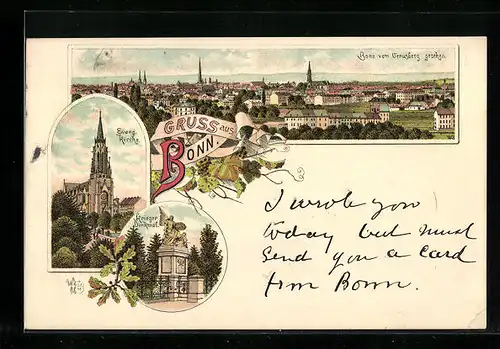 Bonn vom Kreuzberg gesehen.
GRUSS aus
BONN.
Evang.
Kirche.
Krieger
Denkmal.
I wrote you
today but must
send you a card
from Bonn.